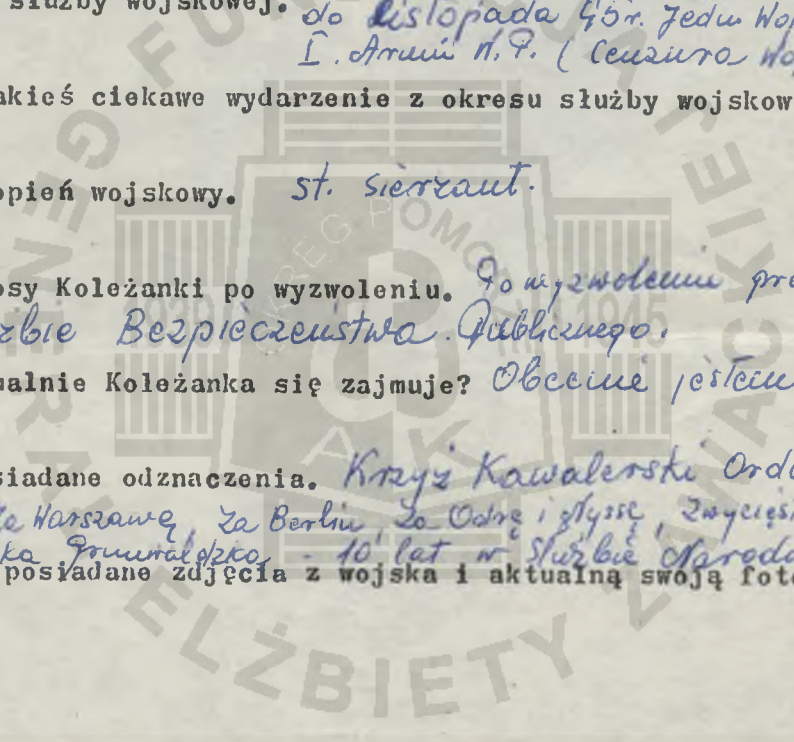 służby wojskowej. do Listopada 45r. Jedn Woj
I. Armii W.P. (Cenzura Wo
akieś ciekawe wydarzenie z okresu służby wojskow
opień wojskowy. st. sierżant.
osy Koleżanki po wyzwoleniu. Po wyzwoleniu pra
żbie Bezpieczeństwa Publicznego.
ualnie Koleżanka się zajmuje? Obecnie jestem
siadane odznaczenia. Krzyż Kawalerski Orde
Za Warszawę, Za Berlin, Za Odrę i Nyssę, Zwycięs
ka Grunwaldzka - 10 lat w Służbie Narodo
posiadane zdjęcia z wojska i aktualną swoją foto
FUN
GEN
OKRĘG POMO
AK
1945
ELŻBIETY ZAWACKIEJ